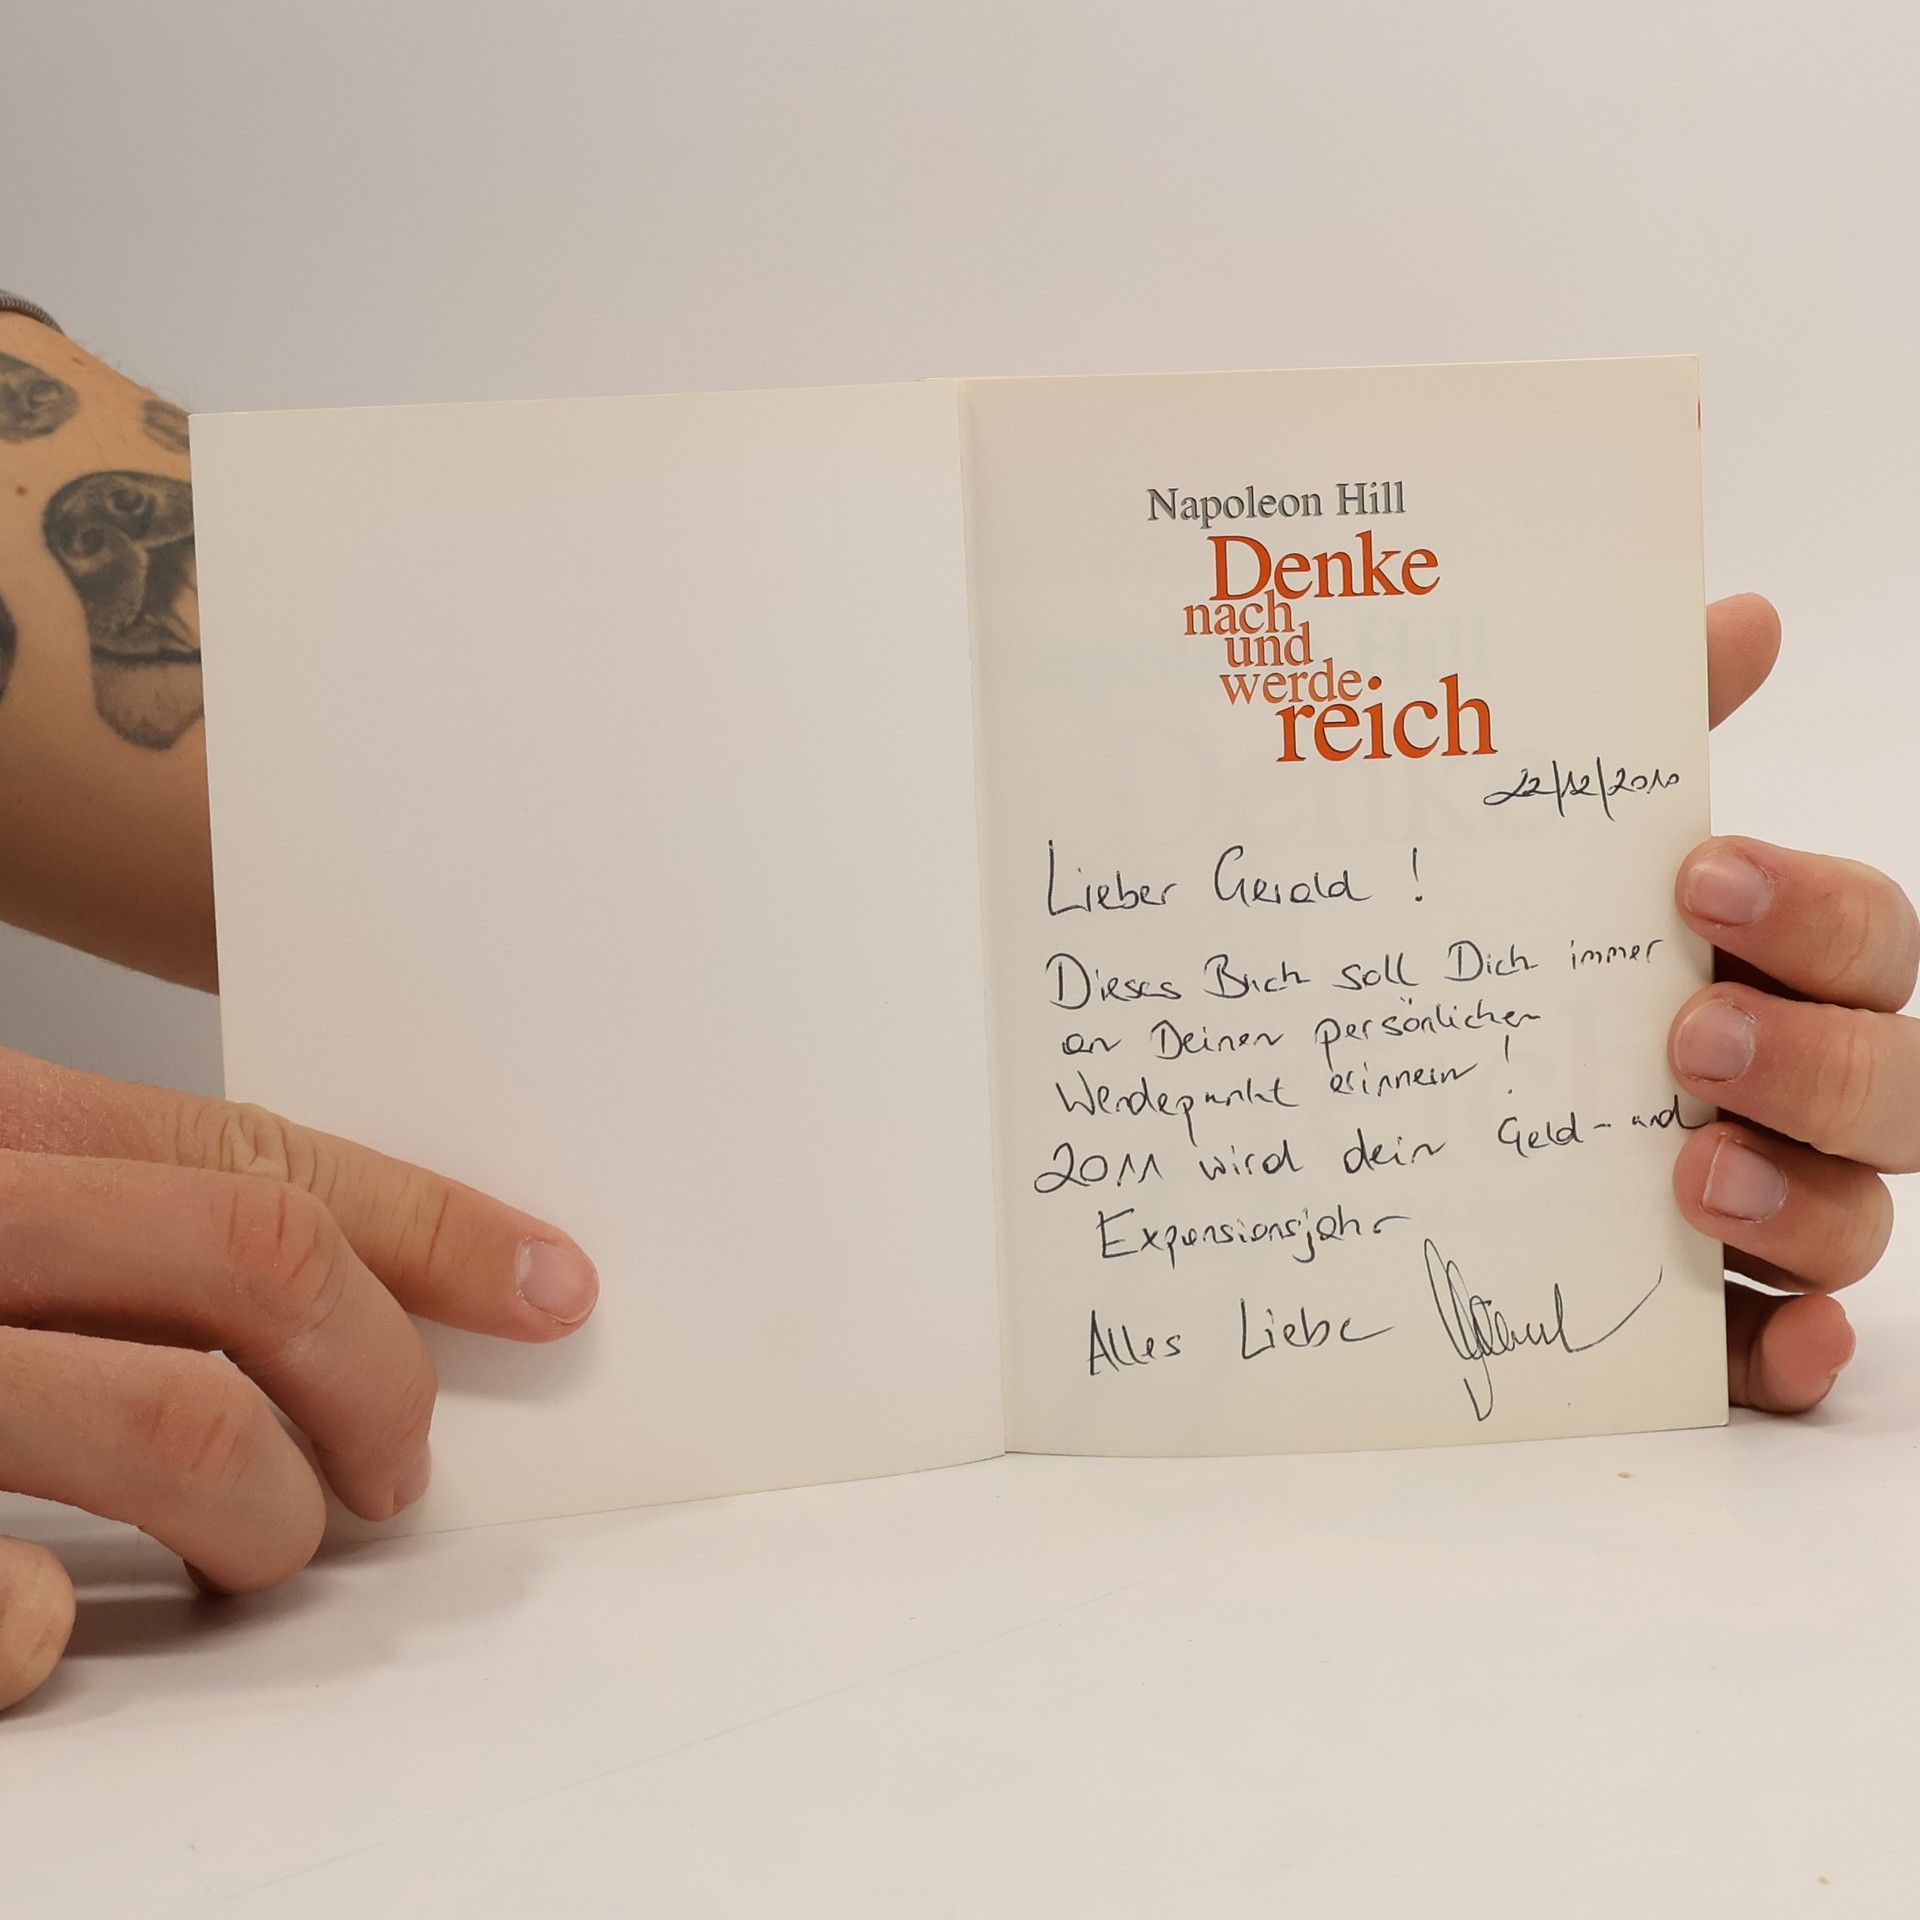 Napoleon Hill
Denke
nach
und
werde
reich
22/12/2010
Lieber Gerald !
Dieses Buch soll Dich immer
an Deinen persönlichen
Wendepunkt erinnern !
2011 wird dein Geld- und
Expansionsjahr
Alles Liebe